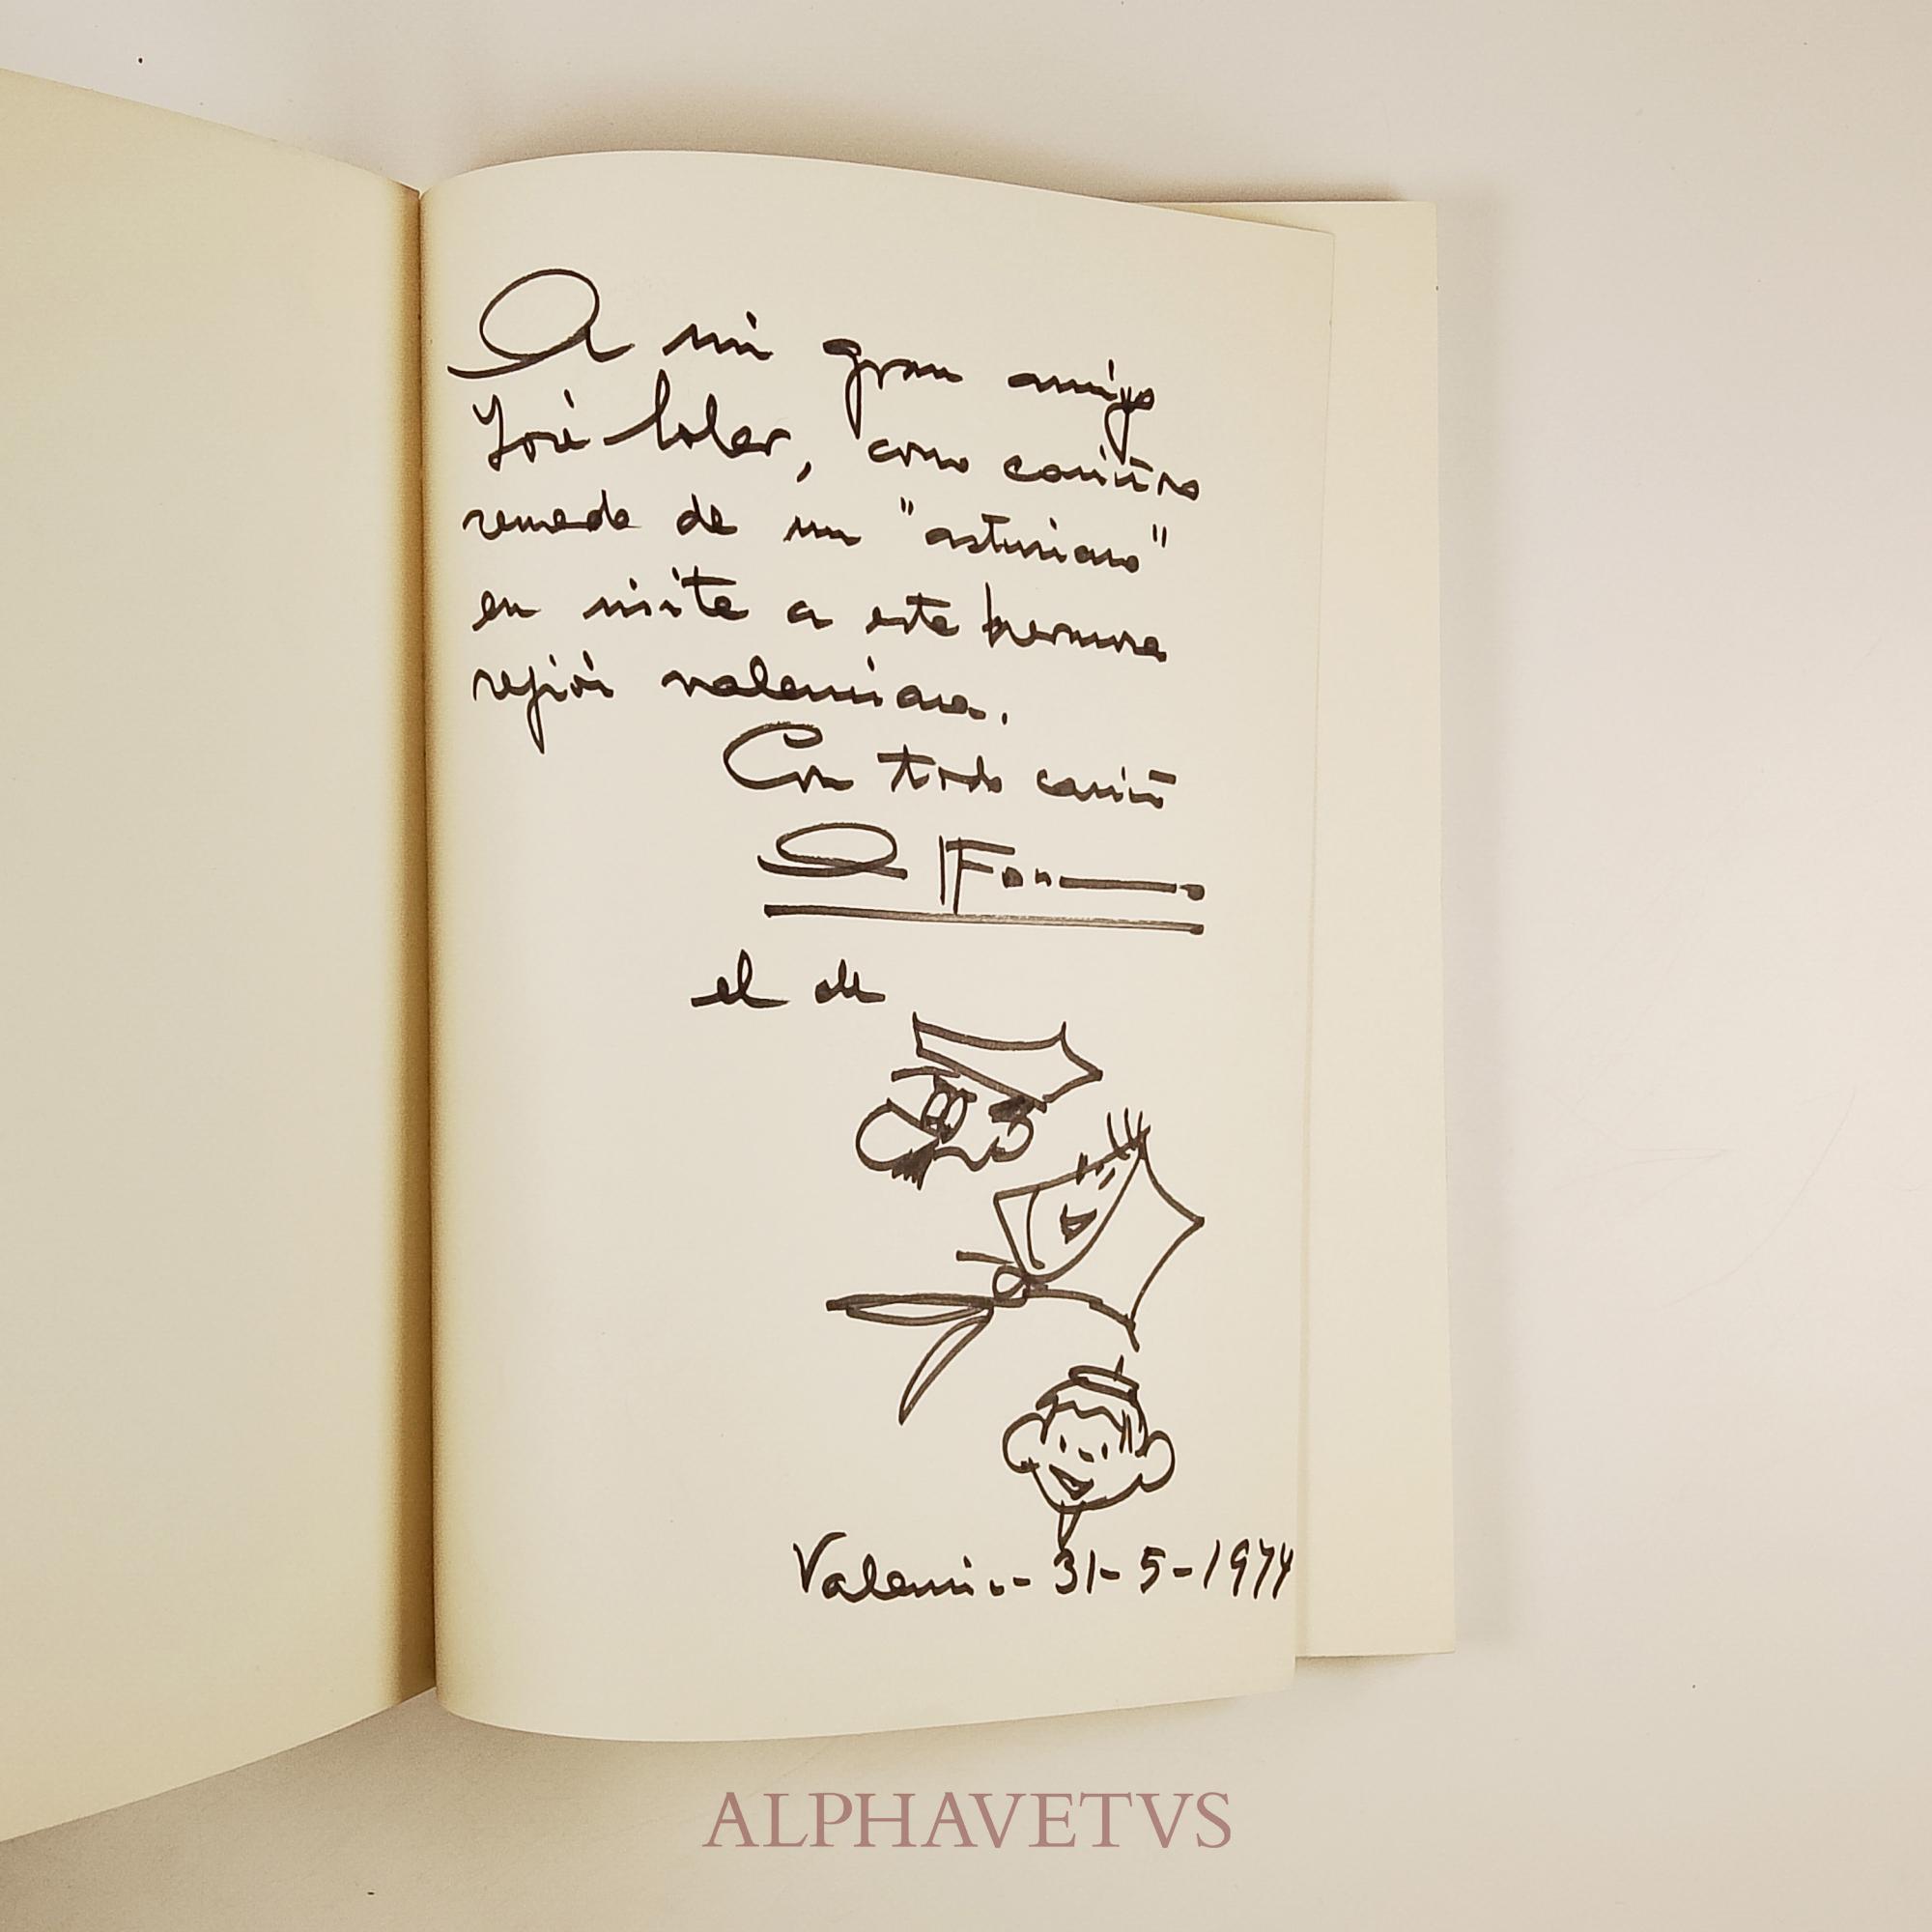 A mi gran amigo
José Soler, como cariñoso
de un "asturiano"
en visita a esta hermosa
región valenciana.
Con todo cariño
Alfon
el de
Valencia - 31 - 5 - 1974
ALPHAVETVS